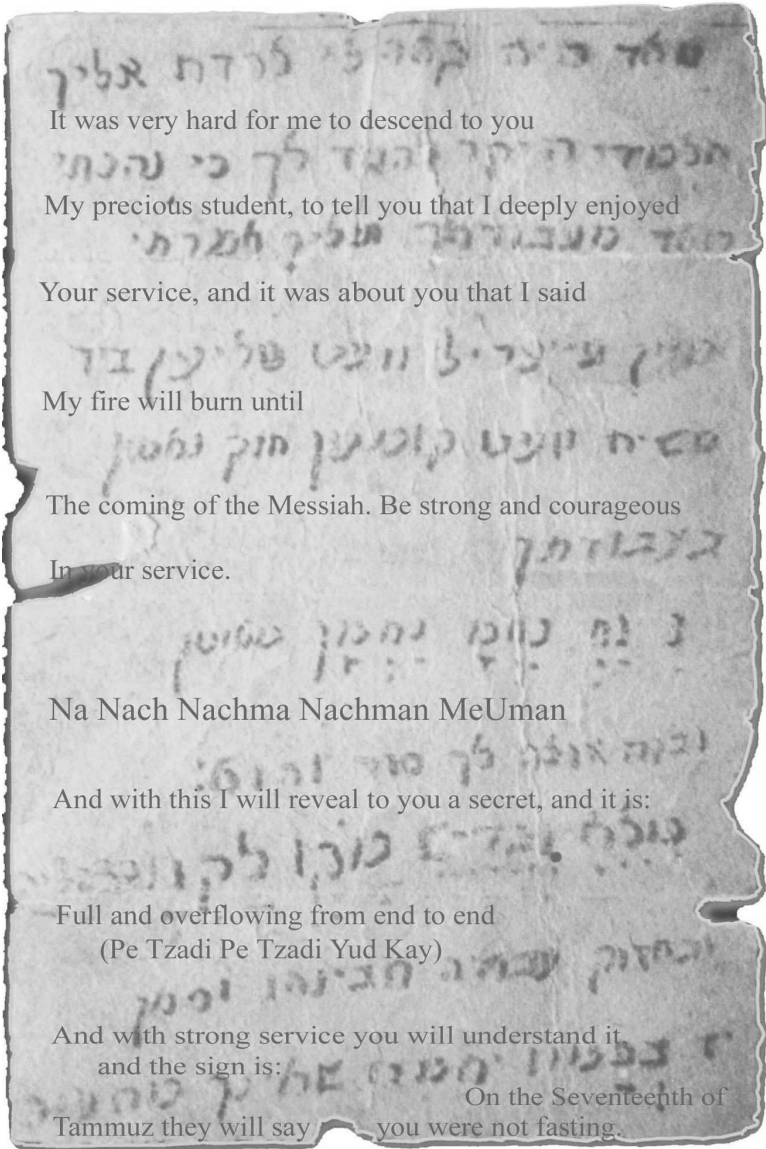 מאד היה קשה לי לרדת אליך
It was very hard for me to descend to you
תלמידי היקר להגיד לך כי נהנתי
My precious student, to tell you that I deeply enjoyed
מאד מעבודתך ועליך אמרתי
Your service, and it was about you that I said
מיין פייעריל וועט טלועין ביז
My fire will burn until
משיח וועט קומען חזק ואמץ
The coming of the Messiah. Be strong and courageous
בעבודתך
In your service.
נ נח נחמ נחמן מאומן
Na Nach Nachma Nachman MeUman
ובזה אגלה לך סוד והוא:
And with this I will reveal to you a secret, and it is:
מלא וגדיש מקו לקו
Full and overflowing from end to end
(Pe Tzadi Pe Tzadi Yud Kay)
ובחזוק עבודה תבינהו וסימן
And with strong service you will understand it,
and the sign is:
יז בתמוז יאמרו
On the Seventeenth of
Tammuz they will say you were not fasting.